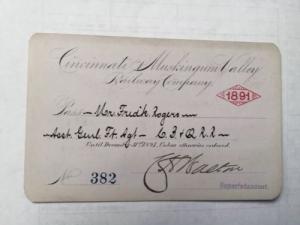 Cincinnati & Muskingum Valley
Railway Company.
1891
Pass Mr. Fredk. Rogers
Asst. Genl. Ft. Agt. C. B. & Q. R. R.
Until December 31st 1891, Unless otherwise ordered.
No 382
Superintendent.